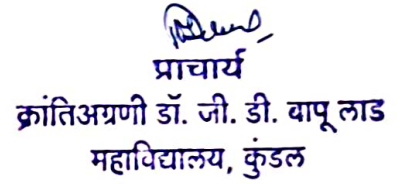 प्राचार्य
क्रांतिअग्रणी डॉ. जी. डी. बापू लाड
महाविद्यालय, कुंडल